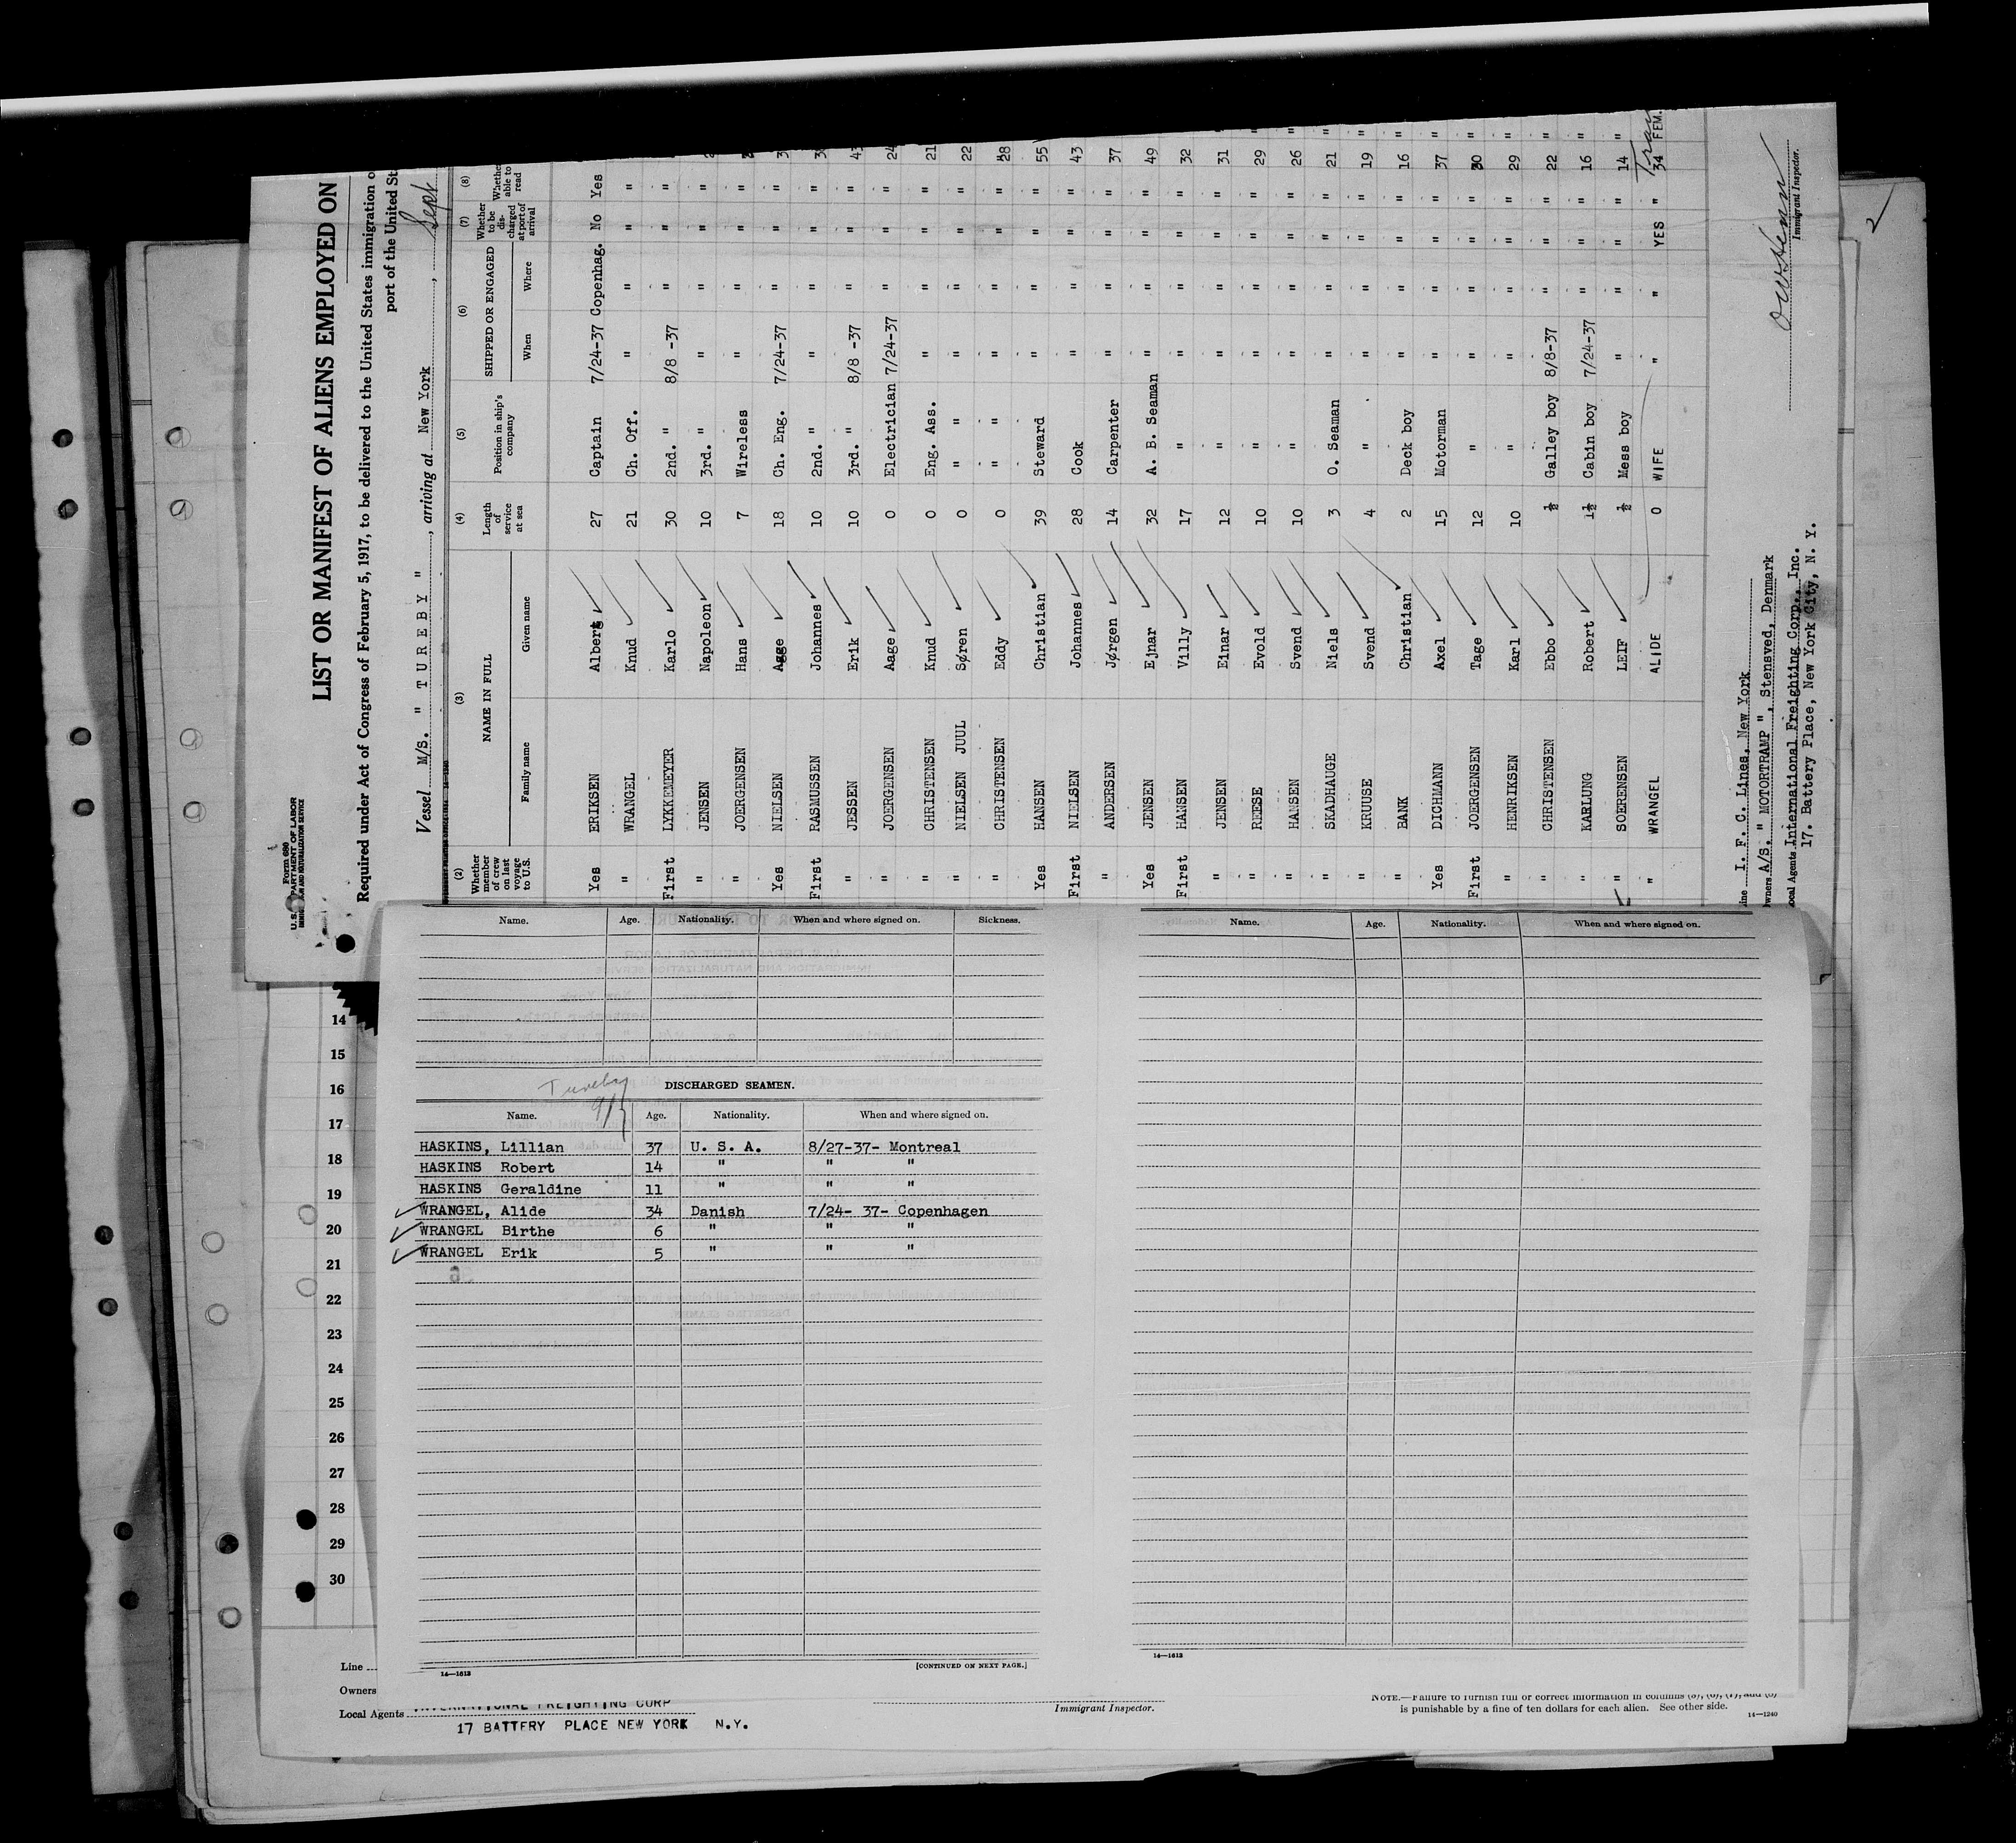 Form 680
U.S. DEPARTMENT OF LABOR
IMMIGRATION AND NATURALIZATION SERVICE
LIST OR MANIFEST OF ALIENS EMPLOYED ON
Required under Act of Congress of February 5, 1917, to be delivered to the United States immigration o
port of the United St
Vessel M/S. " TUREBY ", arriving at New York, Sept
(2) (3) (4) (5) (6) (7) (8)
Whether member of crew on last voyage to U.S. NAME IN FULL Length of service at sea Position in ship's company SHIPPED OR ENGAGED Whether to be discharged at port of arrival Whether able to read
Family name Given name When Where
Yes ERIKSEN Albert 27 Captain 7/24-37 Copenhag. No Yes
" WRANGEL Knud 21 Ch. Off. " " " "
First LYKKEMEYER Karlo 30 2nd. " 8/8 -37 " " "
" JENSEN Napoleon 10 3rd. " " " " "
" JOERGENSEN Hans 7 Wireless " " " "
Yes NIELSEN Aage 18 Ch. Eng. 7/24-37 " " "
First RASMUSSEN Johannes 10 2nd. " " " " "
" JESSEN Erik 10 3rd. " 8/8 -37 " " " 43
" JOERGENSEN Aage 0 Electrician 7/24-37 " " " 24
" CHRISTENSEN Knud 0 Eng. Ass. " " " " 21
" NIELSEN JUUL Søren 0 " " " " " " 22
" CHRISTENSEN Eddy 0 " " " " " " 28
Yes HANSEN Christian 39 Steward " " " " 55
First NIELSEN Johannes 28 Cook " " " " 43 "
" ANDERSEN Jørgen 14 Carpenter " " " " 37 "
Yes JENSEN Ejnar 32 A. B. Seaman " " " " 49 "
First HANSEN Villy 17 " " " " " 32 "
" JENSEN Einar 12 " " " " " 31 "
" REESE Evold 10 " " " " " 29 "
" HANSEN Svend 10 " " " " " 26 "
" SKADHAUGE Niels 3 O. Seaman " " " " 21 "
" KRUUSE Svend 4 " " " " " 19 "
" BANK Christian 2 Deck boy " " " " 16 "
Yes DICHMANN Axel 15 Motorman " " " " 37 "
First JOERGENSEN Tage 12 " " " " " 30 "
" HENRIKSEN Karl 10 " " " " " 29 "
" CHRISTENSEN Ebbo ½ Galley boy 8/8-37 " " " 22 "
" KARLUNG Robert 1½ Cabin boy 7/24-37 " " " 16 "
" SOERENSEN LEIF ½ Mess boy " " " " 14 "
" WRANGEL ALIDE 0 WIFE " " YES " 34 FEM.
Line I. F. C. Lines, New York
Owners A/S. " MOTORTRAMP ", Stensved, Denmark
Local Agents International Freighting Corp., Inc.
17. Battery Place, New York City, N. Y.
Immigrant Inspector.
2
Name. Age. Nationality. When and where signed on. Sickness.
Tureby
9/7
DISCHARGED SEAMEN.
Name. Age. Nationality. When and where signed on.
HASKINS, Lillian 37 U. S. A. 8/27-37- Montreal
HASKINS Robert 14 " " "
HASKINS Geraldine 11 " " "
WRANGEL, Alide 34 Danish 7/24- 37- Copenhagen
WRANGEL Birthe 6 " " "
WRANGEL Erik 5 " " "
14—1613
[CONTINUED ON NEXT PAGE.]
Name. Age. Nationality. When and where signed on.
14—1613
14
15
16
17
18
19
20
21
22
23
24
25
26
27
28
29
30
Line
Owners
Local Agents INTERNATIONAL FREIGHTING CORP
17 BATTERY PLACE NEW YORK N.Y.
Immigrant Inspector.
NOTE.—Failure to furnish full or correct information in columns (5), (6), (7), and (8)
is punishable by a fine of ten dollars for each alien. See other side.
14—1240